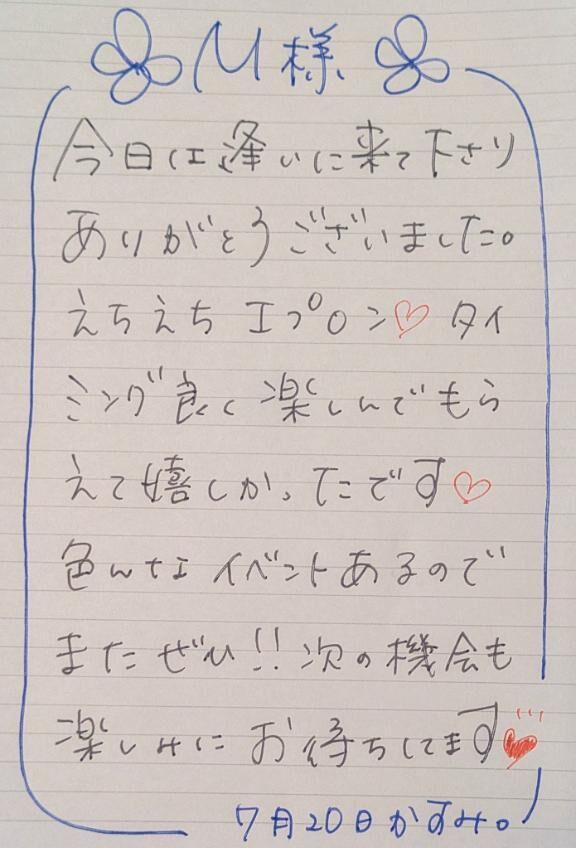 M様
今日は逢いに来て下さり
ありがとうございました。
えちえちエプロン♡タイ
ミング良く楽しんでもら
えて嬉しかったです♡
色んなイベントあるので
またぜひ!!次の機会も
楽しみにお待ちしてます♥
7月20日かすみ。